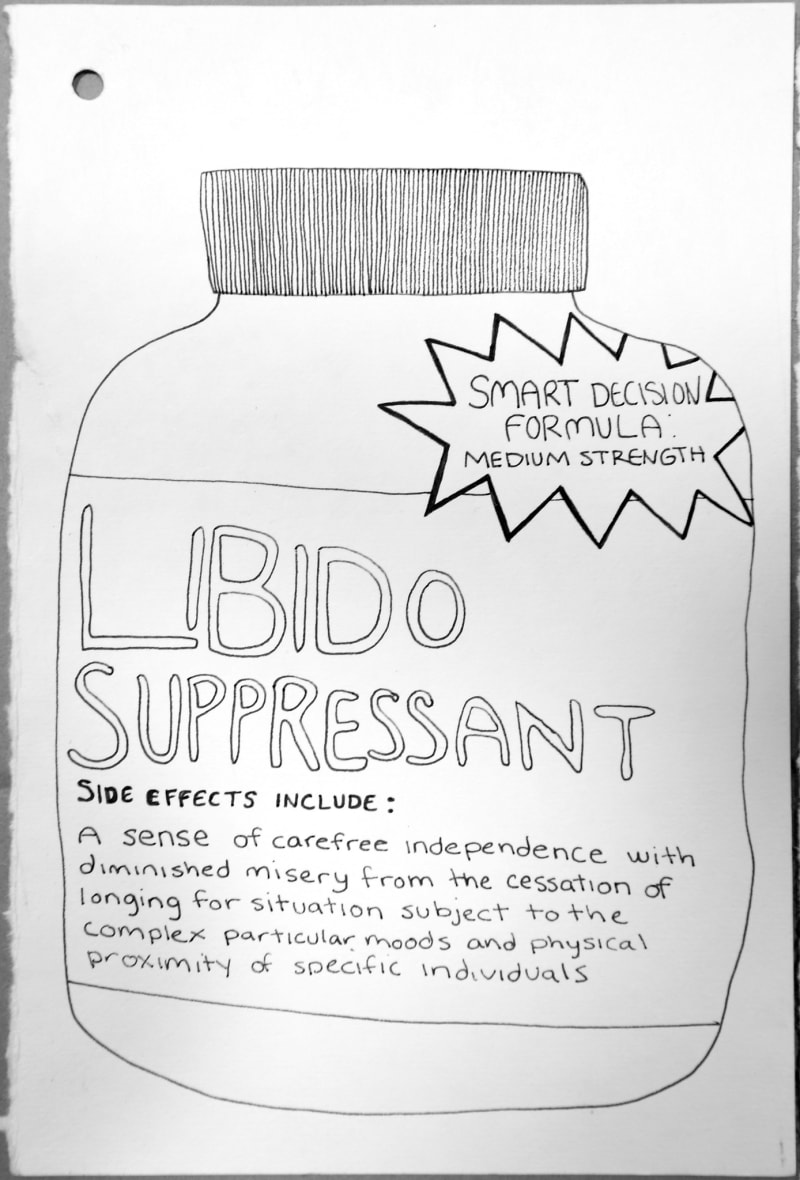 SMART DECISION
FORMULA:
MEDIUM STRENGTH
LIBIDO
SUPPRESSANT
SIDE EFFECTS INCLUDE:
A sense of carefree independence with
diminished misery from the cessation of
longing for situation subject to the
complex particular moods and physical
proximity of specific individuals